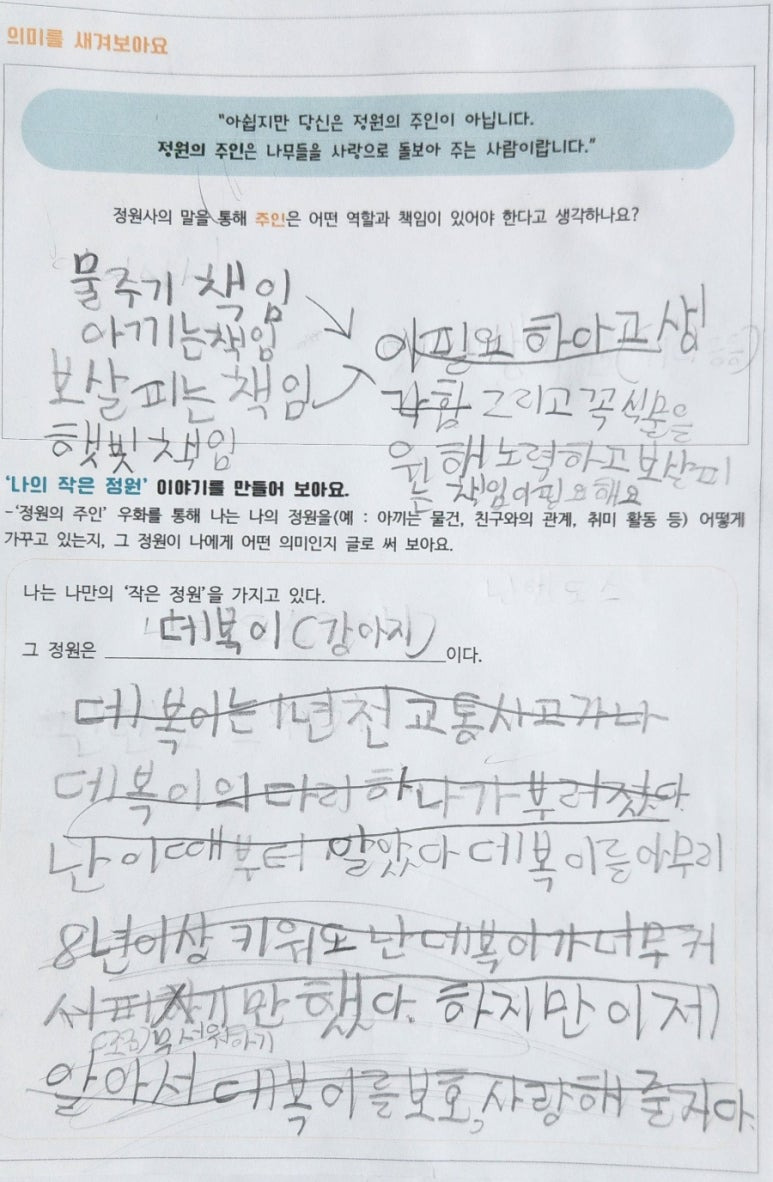 의미를 새겨보아요
"아쉽지만 당신은 정원의 주인이 아닙니다.
정원의 주인은 나무들을 사랑으로 돌보아 주는 사람이랍니다."
정원사의 말을 통해 주인은 어떤 역할과 책임이 있어야 한다고 생각하나요?
물주기 책임
아끼는 책임
보살피는 책임
햇빛 책임
이 필요 하다고 생
각함 그리고 꼭 식물을
원해 노력하고 보살피
는 책임이 필요해요
'나의 작은 정원' 이야기를 만들어 보아요.
-'정원의 주인' 우화를 통해 나는 나의 정원을(예 : 아끼는 물건, 친구와의 관계, 취미 활동 등) 어떻게
가꾸고 있는지, 그 정원이 나에게 어떤 의미인지 글로 써 보아요.
나는 나만의 '작은 정원'을 가지고 있다.
그 정원은 데복이(강아지) 이다.
데복이는 1년 전 교통사고가 나
데복이의 다리 하나가 부러졌다.
난 이때부터 알았다 데복이를 아무리
8년이상 키워도 난 데복이가 너무 커
서 피하기만 했다. 하지만 이제
(조금) 무서워하기
알아서 데복이를 보호, 사랑해 줄거다.